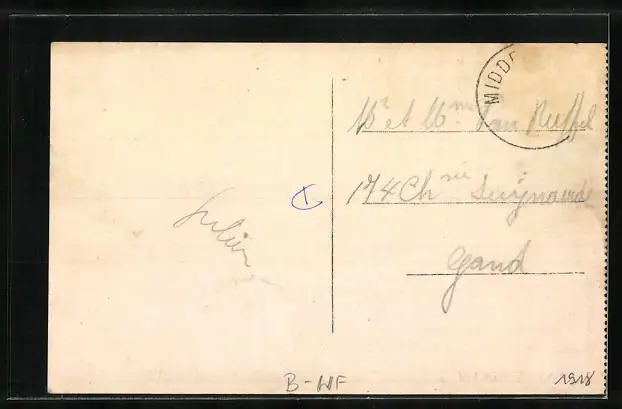 MIDD
Mr et Mme Van Ruffel
174 Chée Swijnaerde
Gand
Julien
B-WF
1918